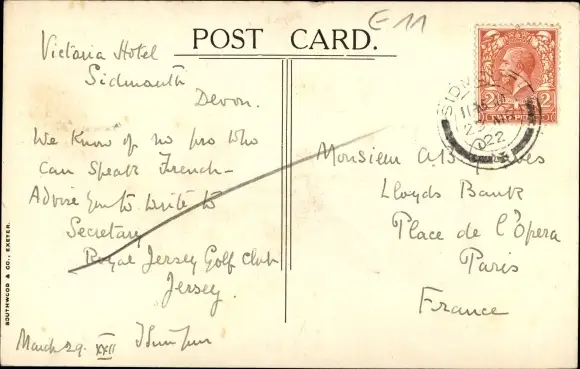 E 11
POST CARD.
Victoria Hotel
Sidmouth
Devon.
We know of no pro who
can speak French –
Advise you to write to
Secretary
Royal Jersey Golf Club
Jersey.
March 29. XXII
Monsieur
Lloyds Bank
Place de l'Opera
Paris
France
SIDMOUTH
22
2 2
SOUTHWOOD & CO., EXETER.